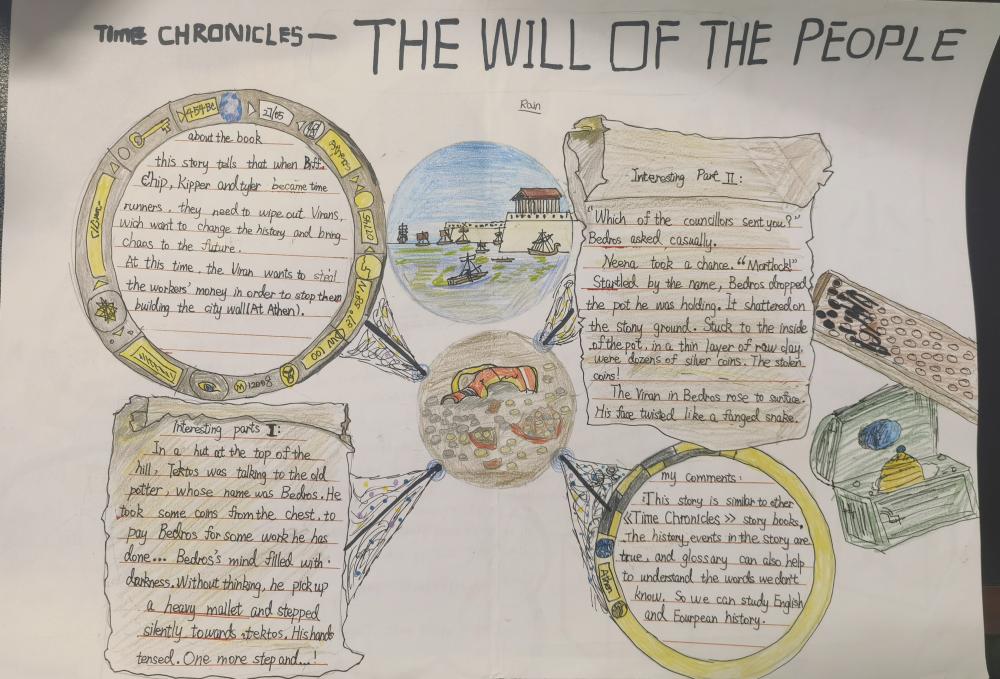 TIME CHRONICLES— THE WILL OF THE PEOPLE
Rain
454Bc
27/05
about the book
this story tells that when Biff.
Chip, Kipper and tyler became time
runners, they need to wipe out Virans,
wich want to change the history and bring
chaos to the future.
At this time, the Viran wants to steal
the workers' money in order to stop them
building the city wall(At Athen).
12008
Interesting Part II:
"Which of the councillors sent you?"
Bedros asked casually.
Neena took a chance. "Mortlock!"
Startled by the name, Bedros dropped
the pot he was holding. It shattered on
the stony ground. Stuck to the inside
of the pot, in a thin layer of raw clay,
were dozens of silver coins. The stolen
coins!
The Viran in Bedros rose to surface.
His face twisted like a fanged snake.
Interesting parts I:
In a hut at the top of the
hill, Tektos was talking to the old
potter, whose name was Bedros. He
took some coins from the chest. to
pay Bedros for some work he has
done... Bedros's mind filled with
darkness. Without thinking, he pick up
a heavy mallet and stepped
silently towards tektos. His hands
tensed. One more step and...!
my comments:
This story is similar to other
《Time Chronicles》 story books.
The history events in the story are
true, and glossary can also help
to understand the words we don't
know. So we can study English
and Eourpean history.
Athen